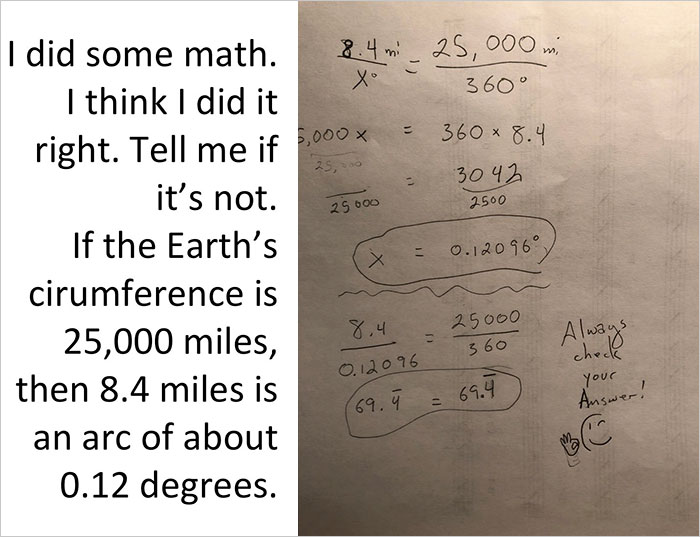 I did some math.
I think I did it
right. Tell me if
it’s not.
If the Earth’s
cirumference is
25,000 miles,
then 8.4 miles is
an arc of about
0.12 degrees.
8.4 mi = 25,000 mi
X° 360°
5,000 x = 360 × 8.4
25,000
= 3042
25000 2500
x = 0.12096°
8.4 = 25000
0.12096 360
69.4̅ = 69.4̅
Always
check
your
Answer!